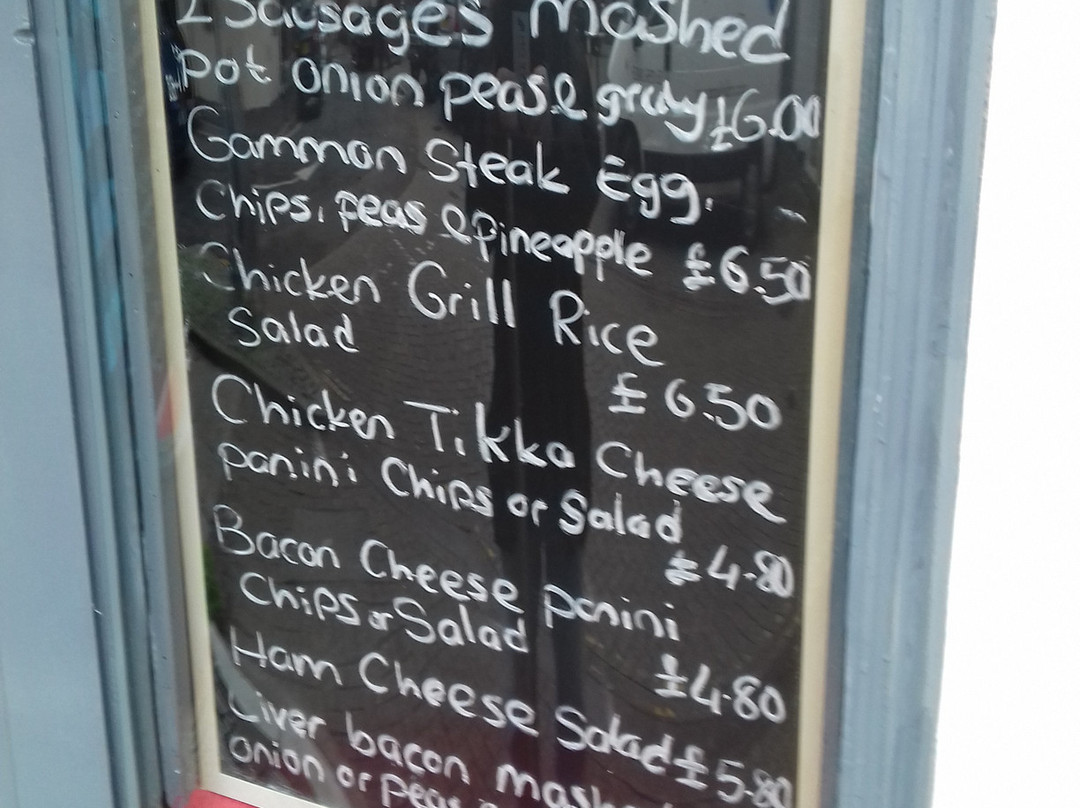 2 Sausages mashed
pot onion peas & gravy £6.00
Gammon Steak Egg.
Chips, peas & Pineapple £6.50
Chicken Grill Rice
Salad
£6.50
Chicken Tikka Cheese
panini Chips or Salad
£4.80
Bacon Cheese panini
Chips or Salad
£4.80
Ham Cheese Salad £5.80
Liver bacon
onion or peas